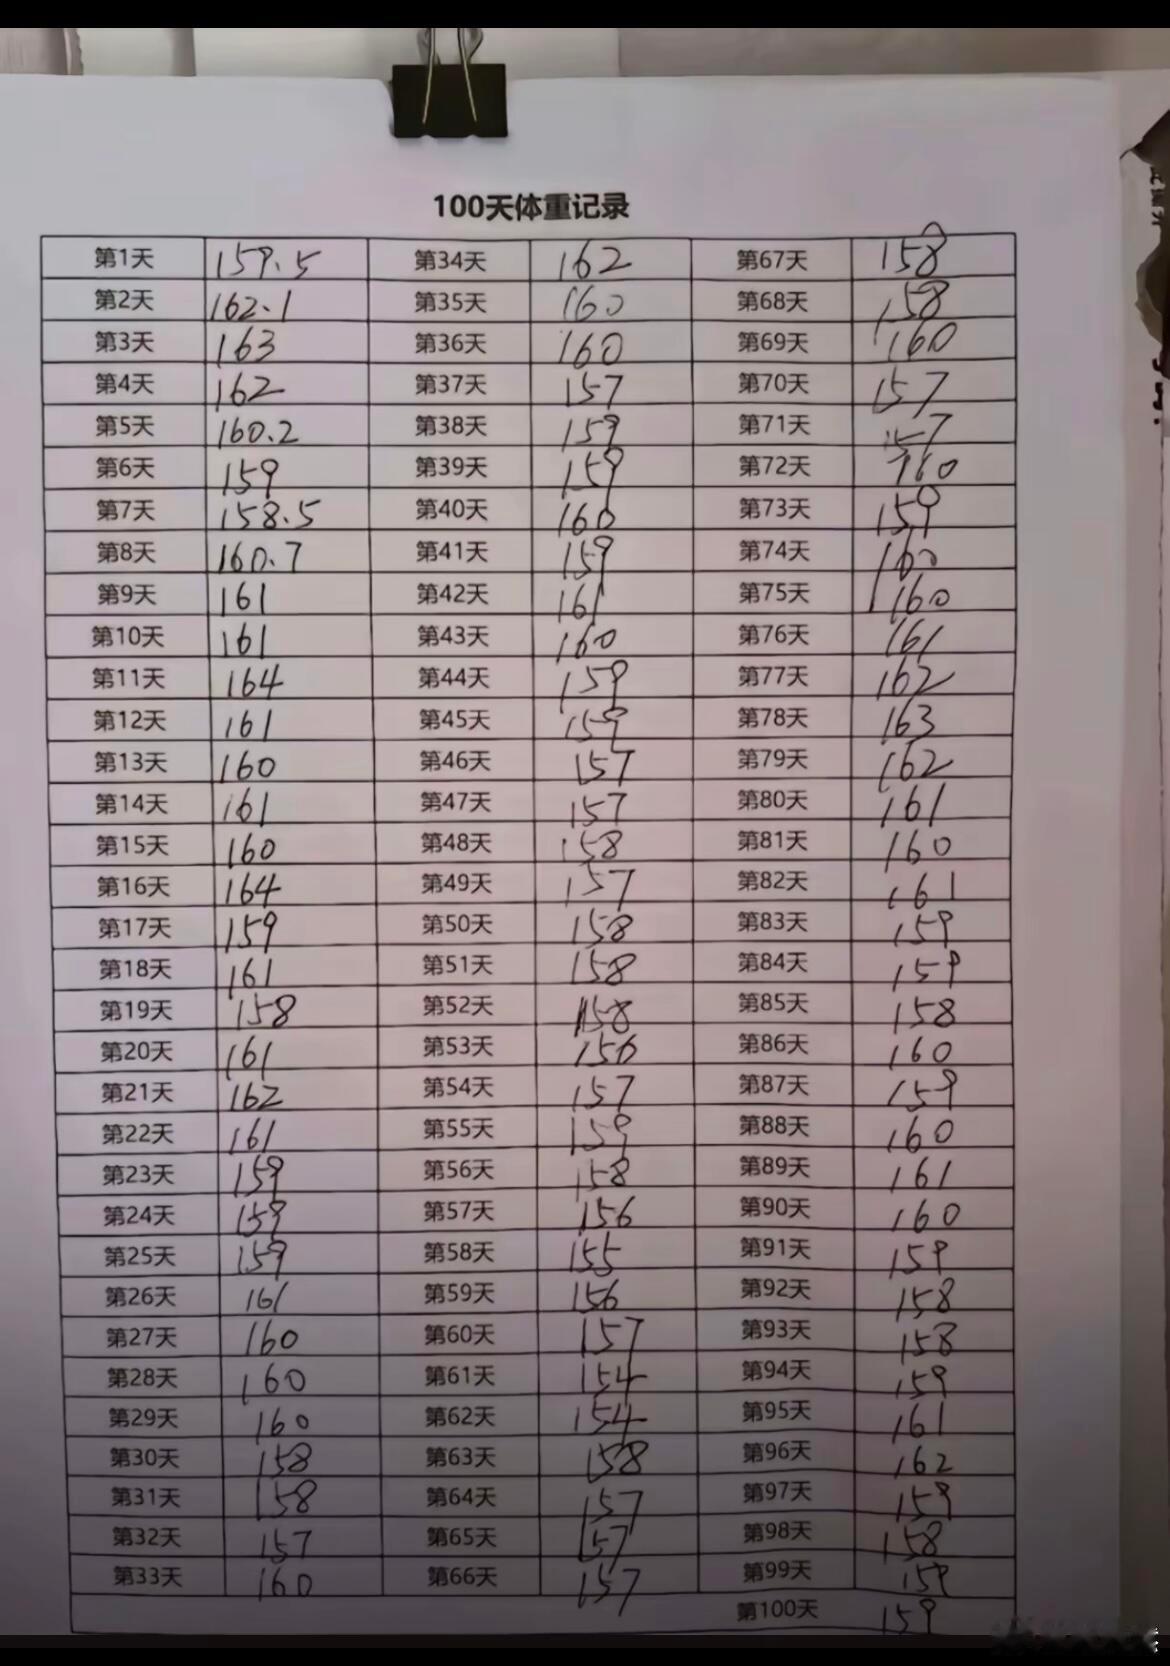 100天体重记录
第1天 159.5 第34天 162 第67天 158
第2天 162.1 第35天 160 第68天 158
第3天 163 第36天 160 第69天 160
第4天 162 第37天 157 第70天 157
第5天 160.2 第38天 159 第71天 157
第6天 159 第39天 159 第72天 160
第7天 158.5 第40天 160 第73天 159
第8天 160.7 第41天 159 第74天 160
第9天 161 第42天 161 第75天 160
第10天 161 第43天 160 第76天 161
第11天 164 第44天 159 第77天 162
第12天 161 第45天 159 第78天 163
第13天 160 第46天 157 第79天 162
第14天 161 第47天 157 第80天 161
第15天 160 第48天 158 第81天 160
第16天 164 第49天 157 第82天 161
第17天 159 第50天 158 第83天 159
第18天 161 第51天 158 第84天 159
第19天 158 第52天 158 第85天 158
第20天 161 第53天 156 第86天 160
第21天 162 第54天 157 第87天 159
第22天 161 第55天 159 第88天 160
第23天 159 第56天 158 第89天 161
第24天 159 第57天 156 第90天 160
第25天 159 第58天 155 第91天 159
第26天 161 第59天 156 第92天 158
第27天 160 第60天 157 第93天 158
第28天 160 第61天 154 第94天 159
第29天 160 第62天 154 第95天 161
第30天 158 第63天 158 第96天 162
第31天 158 第64天 157 第97天 159
第32天 157 第65天 157 第98天 158
第33天 160 第66天 157 第99天 159
第100天 159